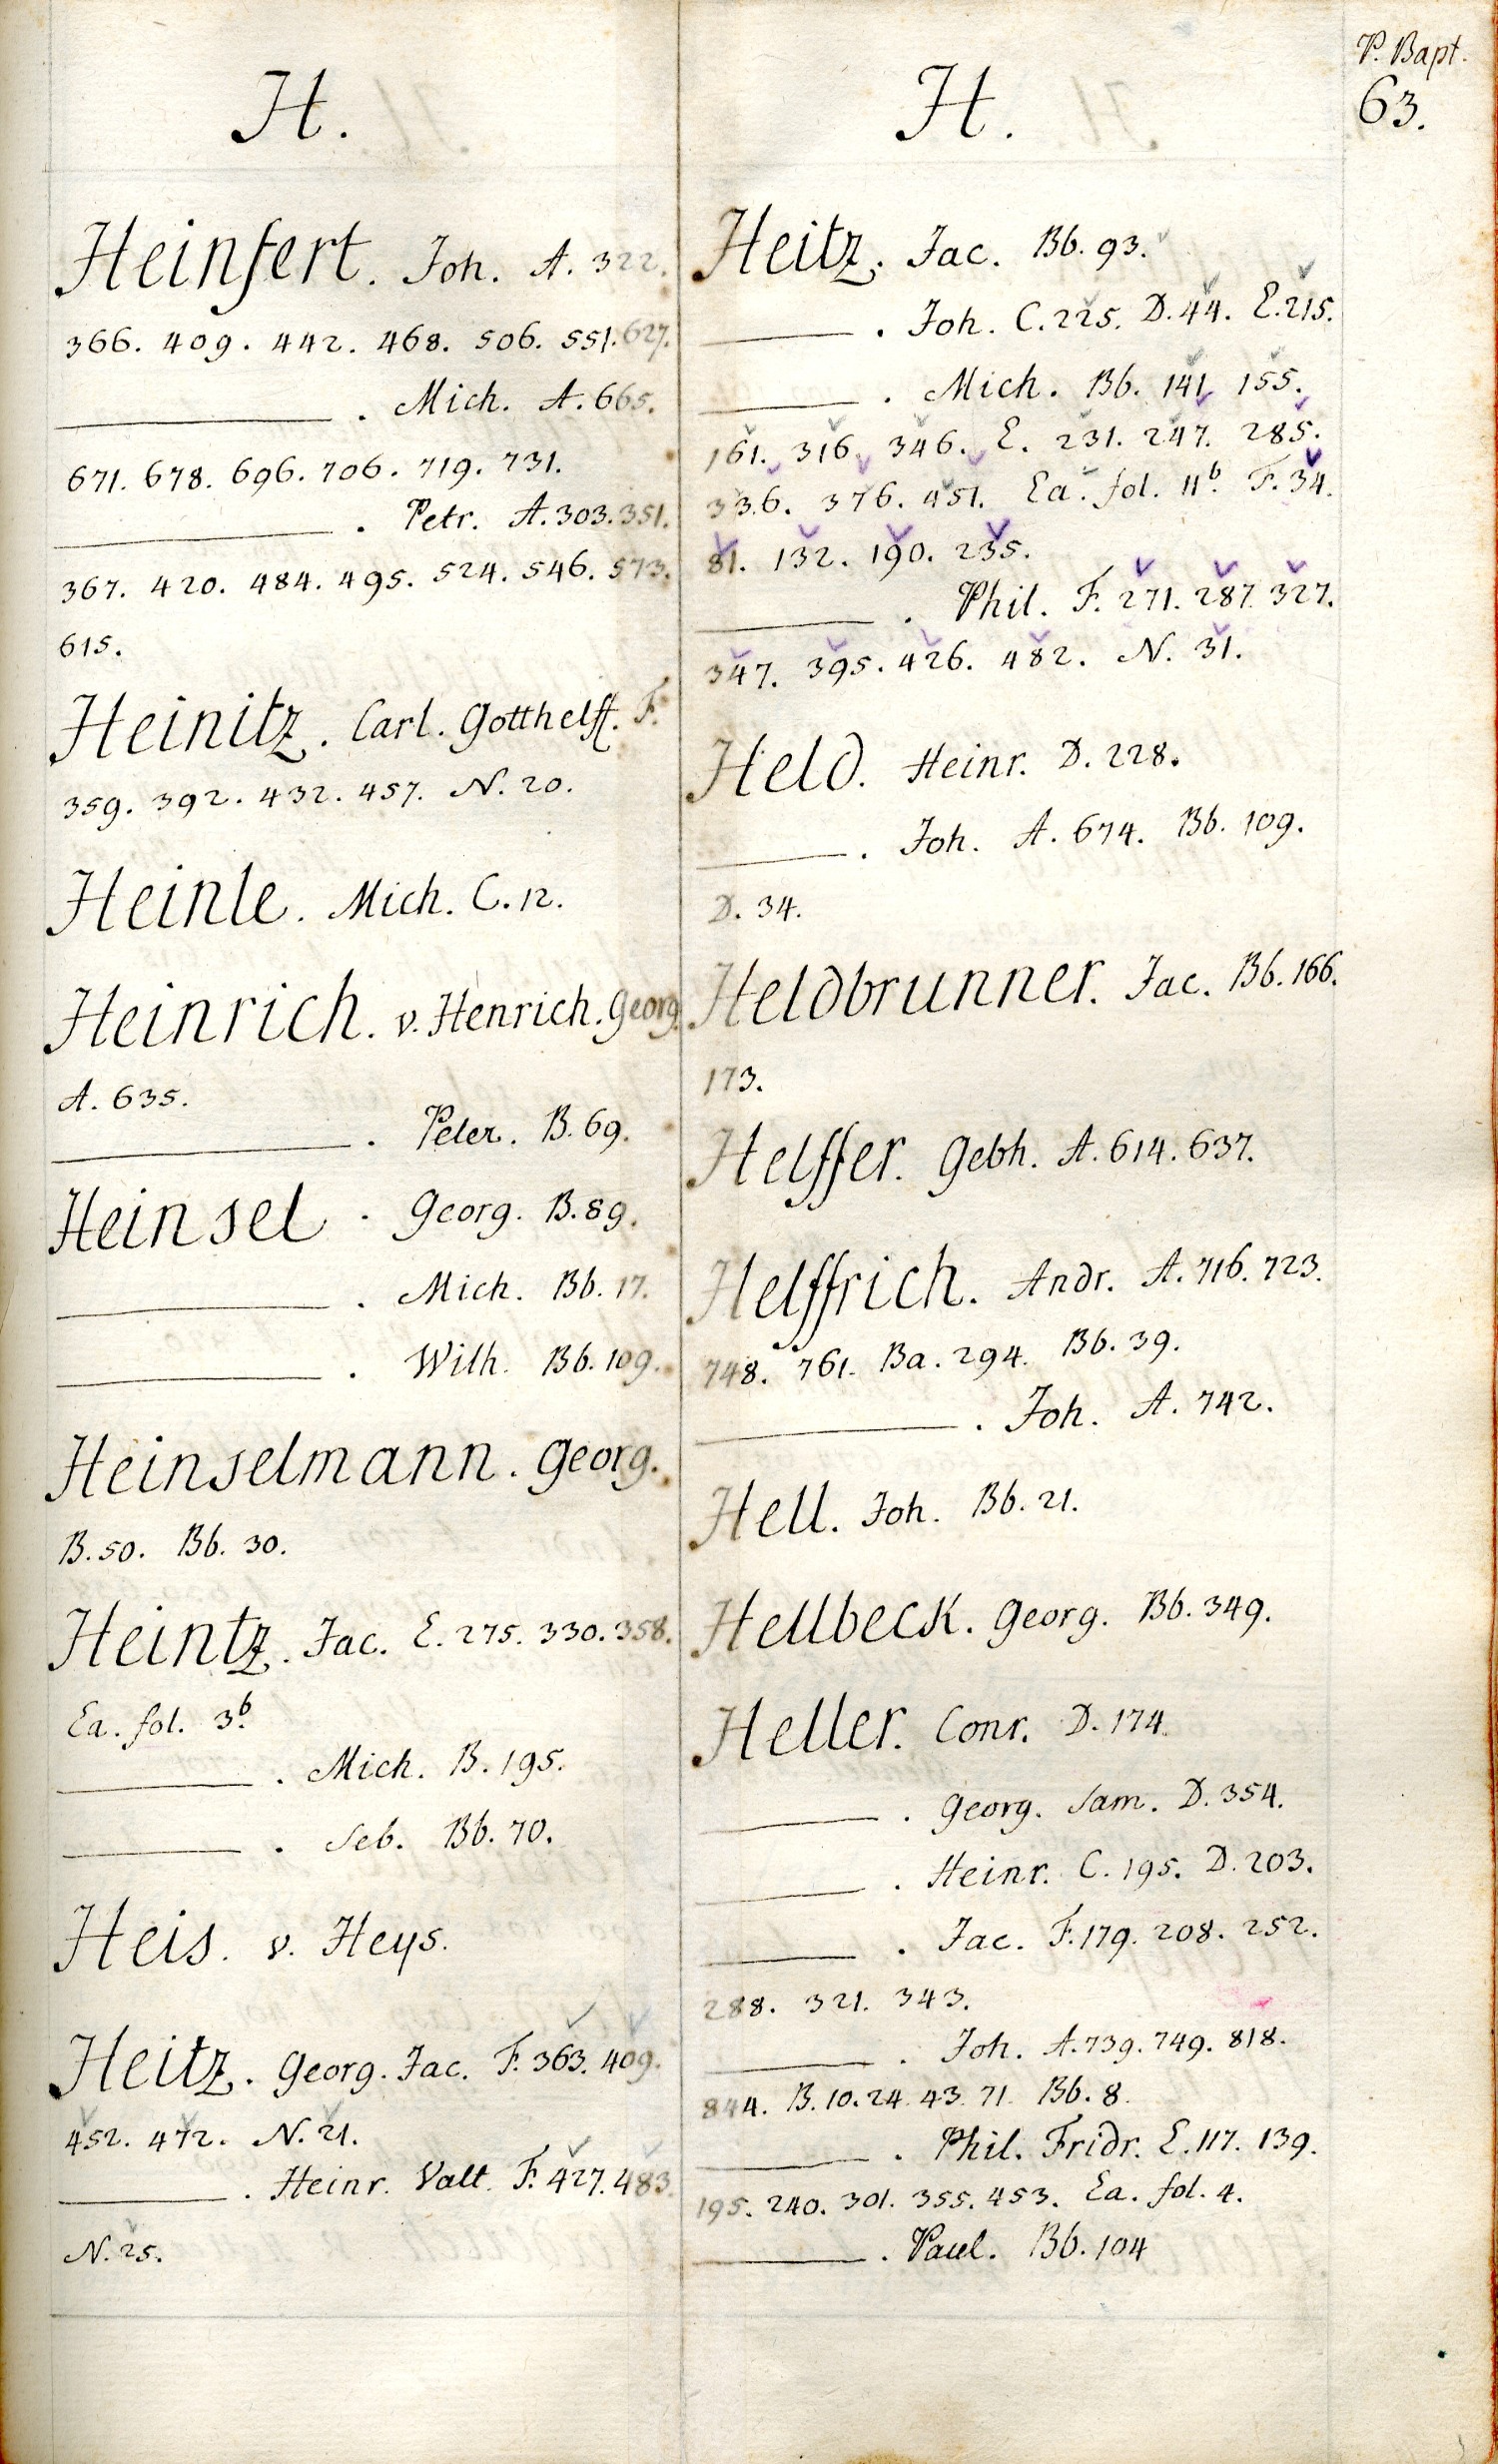 P. Bapt.
63.
H.
Heinfert. Joh. A. 322.
366. 409. 442. 468. 506. 551. 627.
——— . Mich. A. 665.
671. 678. 696. 706. 719. 731.
——— . Petr. A. 303. 351.
367. 420. 484. 495. 524. 546. 573.
615.
Heinitz. Carl. Gotthelff. F.
359. 392. 432. 457. N. 20.
Heinle. Mich. C. 12.
Heinrich. v. Henrich. Georg.
A. 635.
——— . Peter. B. 69.
Heinsel . Georg. B. 89.
——— . Mich. Bb. 17.
——— . Wilh. Bb. 109.
Heinselmann. Georg.
B. 50. Bb. 30.
Heintz. Jac. E. 275. 330. 358.
Ea. fol. 3b.
——— . Mich. B. 195.
——— . Seb. Bb. 70.
Heis. v. Heys.
Heitz. Georg. Jac. F. 363. 409.
452. 472. N. 21.
——— . Heinr. Valt. F. 427. 483.
N. 25.
H.
Heitz. Jac. Bb. 93.
——— . Joh. C. 225. D. 44. E. 215.
——— . Mich. Bb. 141. 155.
161. 316. 346. E. 231. 247. 285.
336. 376. 451. Ea. fol. 11b. F. 34.
81. 132. 190. 235.
——— . Phil. F. 271. 287. 327.
347. 395. 426. 482. N. 31.
Held. Heinr. D. 228.
——— . Joh. A. 674. Bb. 109.
D. 34.
Heldbrunner. Jac. Bb. 166.
173.
Helffer. Gebh. A. 614. 637.
Helffrich. Andr. A. 716. 723.
748. 761. Ba. 294. Bb. 39.
——— . Joh. A. 742.
Hell. Joh. Bb. 21.
Hellbeck. Georg. Bb. 349.
Heller. Conr. D. 174.
——— . Georg. Sam. D. 354.
——— . Heinr. C. 195. D. 203.
——— . Jac. F. 179. 208. 252.
288. 321. 343.
——— . Joh. A. 739. 749. 818.
844. B. 10. 24. 43. 71. Bb. 8.
——— . Phil. Fridr. E. 117. 139.
195. 240. 301. 355. 453. Ea. fol. 4.
——— . Paul. Bb. 104